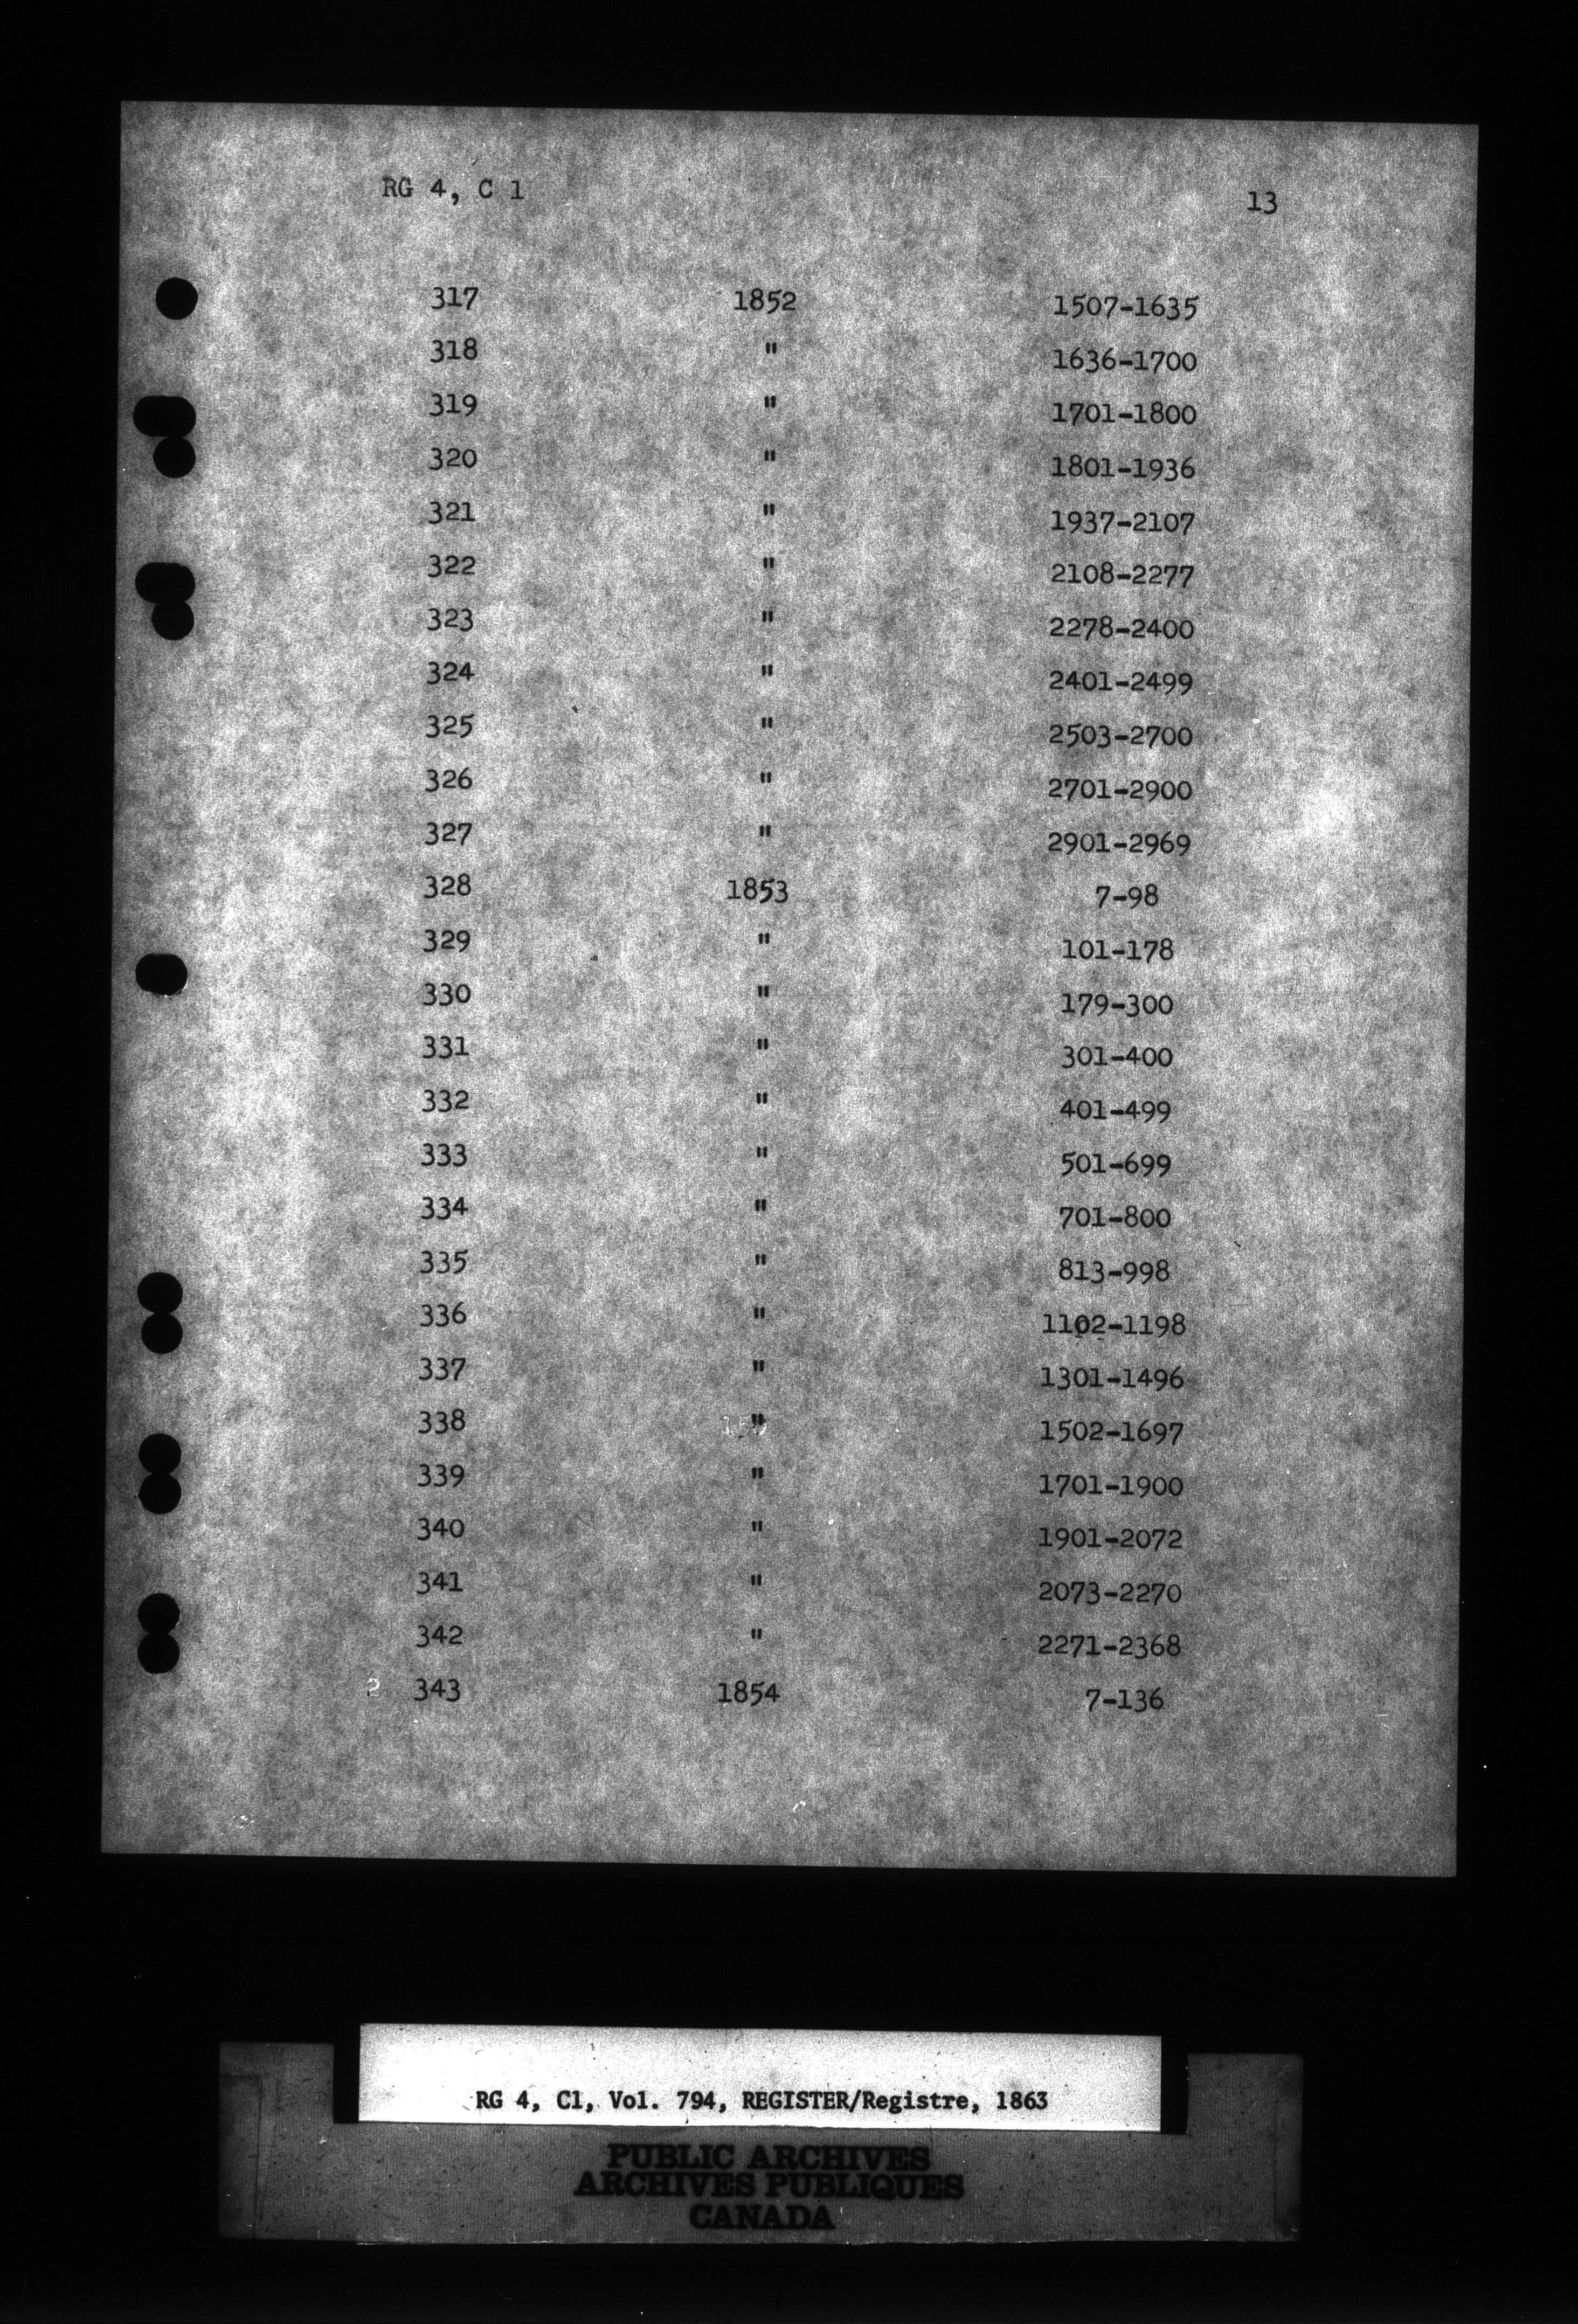 RG 4, C 1 13
317 1852 1507-1635
318 " 1636-1700
319 " 1701-1800
320 " 1801-1936
321 " 1937-2107
322 " 2108-2277
323 " 2278-2400
324 " 2401-2499
325 " 2503-2700
326 " 2701-2900
327 " 2901-2969
328 1853 7-98
329 " 101-178
330 " 179-300
331 " 301-400
332 " 401-499
333 " 501-699
334 " 701-800
335 " 813-998
336 " 1102-1198
337 " 1301-1496
338 " 1502-1697
339 " 1701-1900
340 " 1901-2072
341 " 2073-2270
342 " 2271-2368
343 1854 7-136
RG 4, C1, Vol. 794, REGISTER/Registre, 1863
PUBLIC ARCHIVES
ARCHIVES PUBLIQUES
CANADA